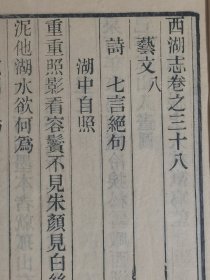 西湖志卷之三十八
藝文八
詩 七言絕句
湖中自照
重重照影看容鬢不見朱顏見白絲
泥他湖水欲何為